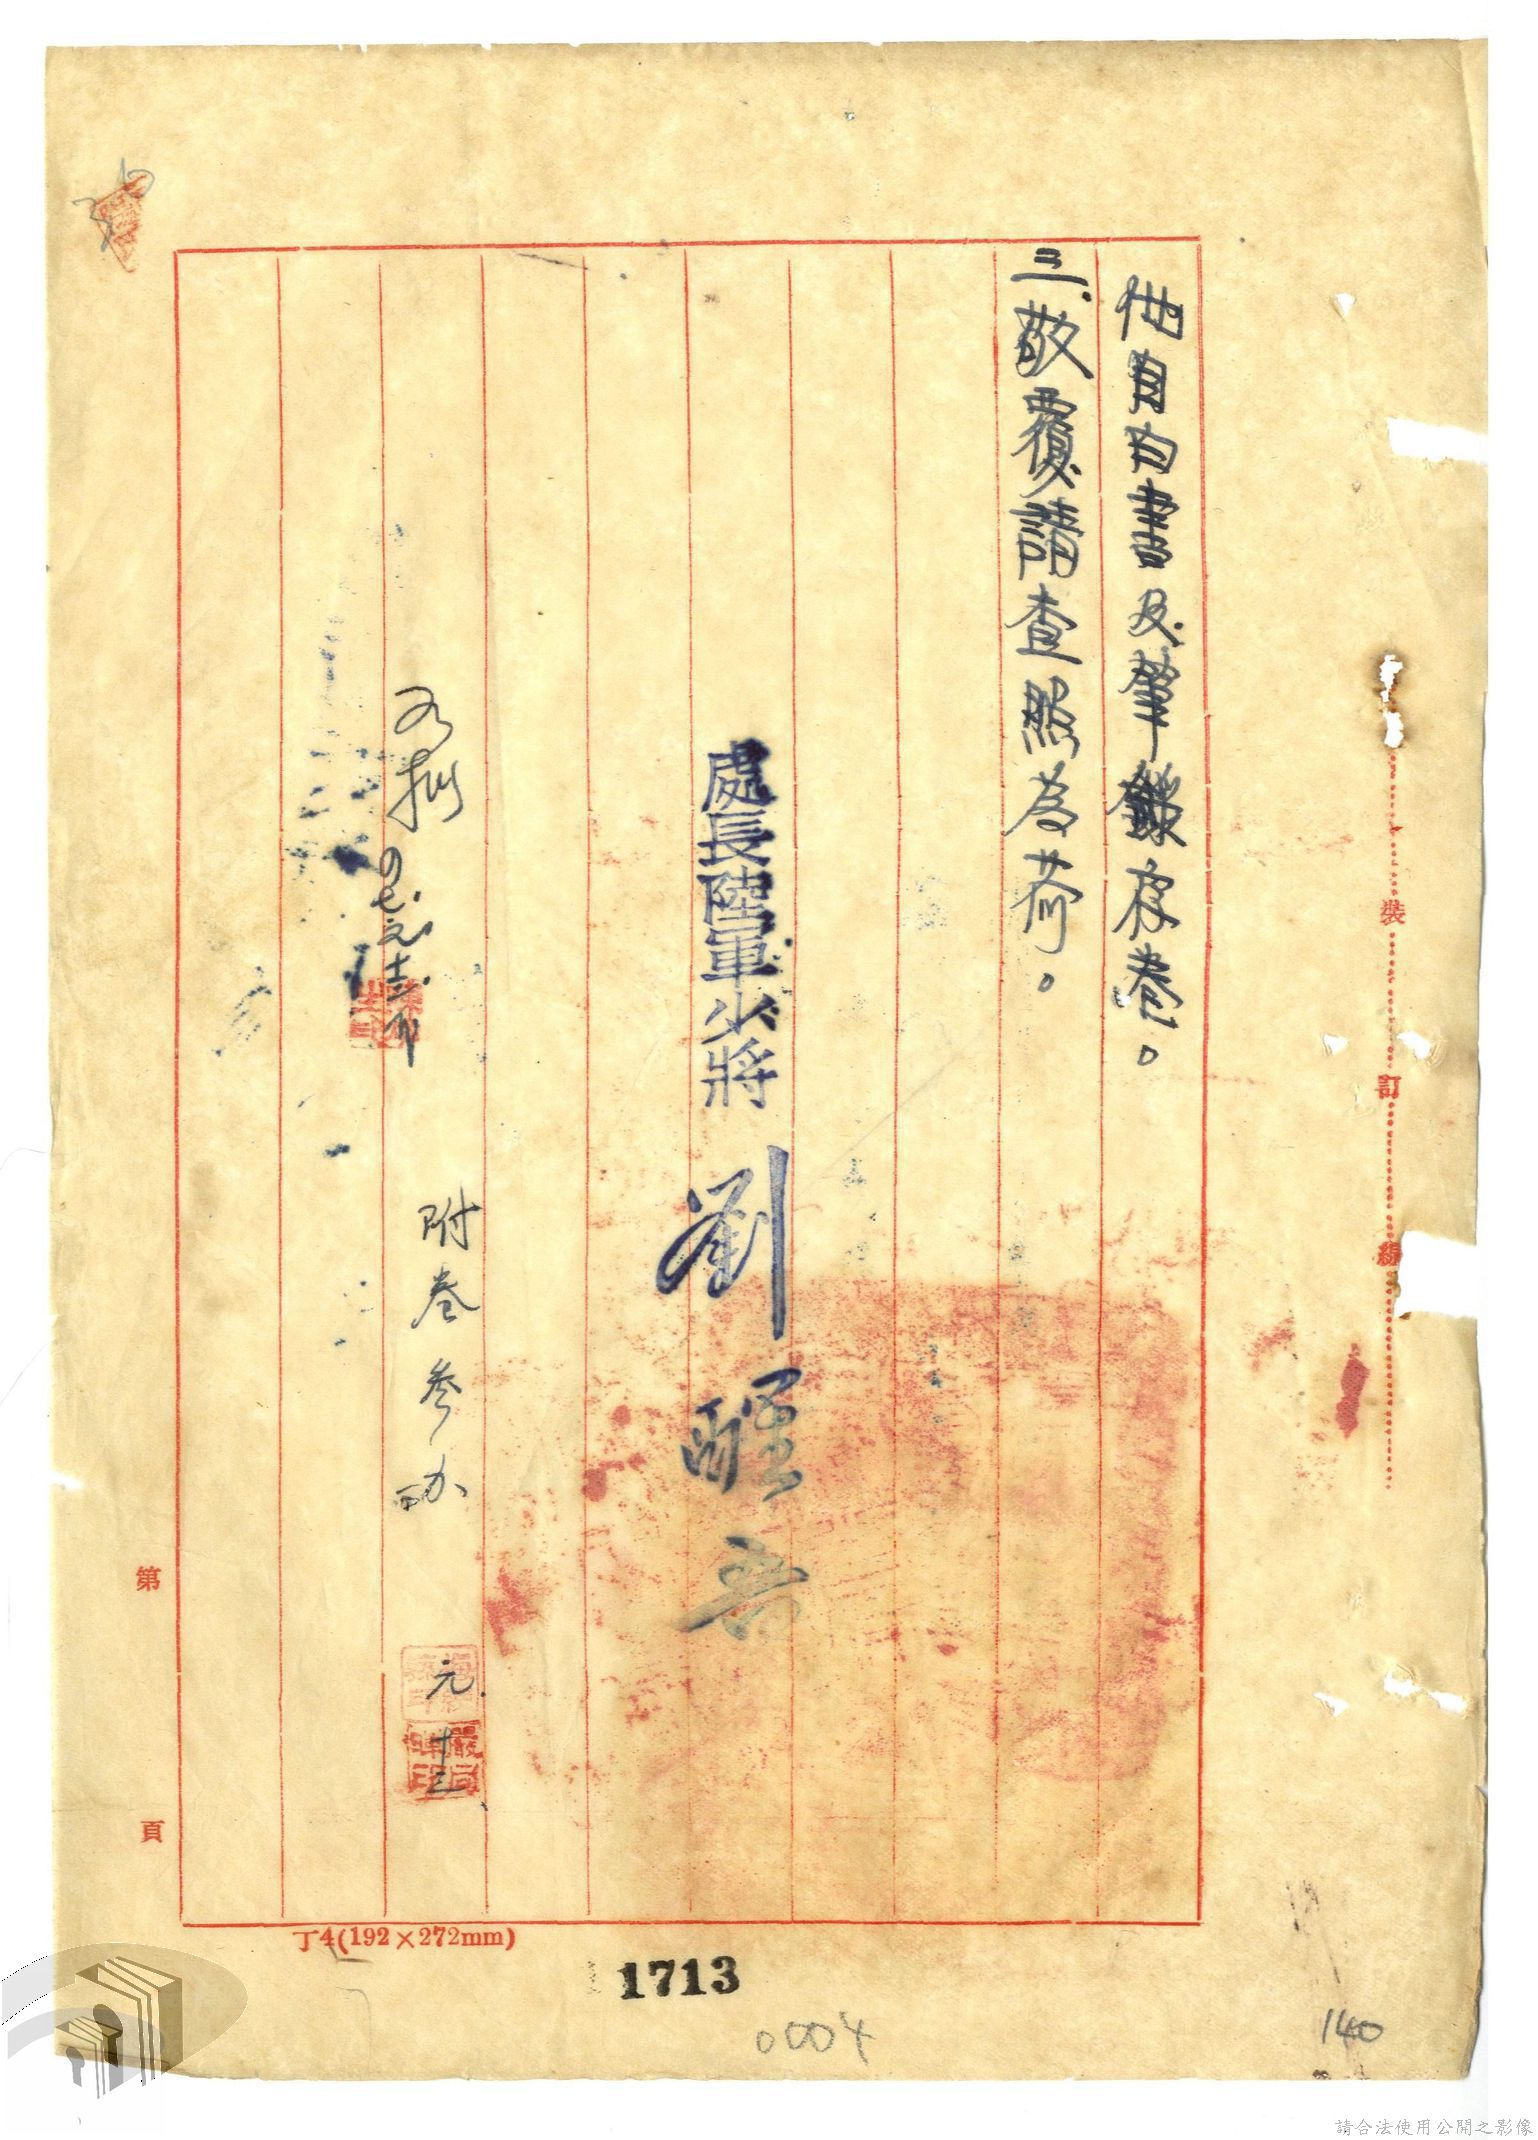 供自白書及筆錄存卷。
三.敬覆請查照為荷。
處長陸軍少將 劉醒吾
附卷參办
元.十三、
裝
訂
線
第
頁
丁4(192×272mm)
1713
0004
140
請合法使用公開之影像